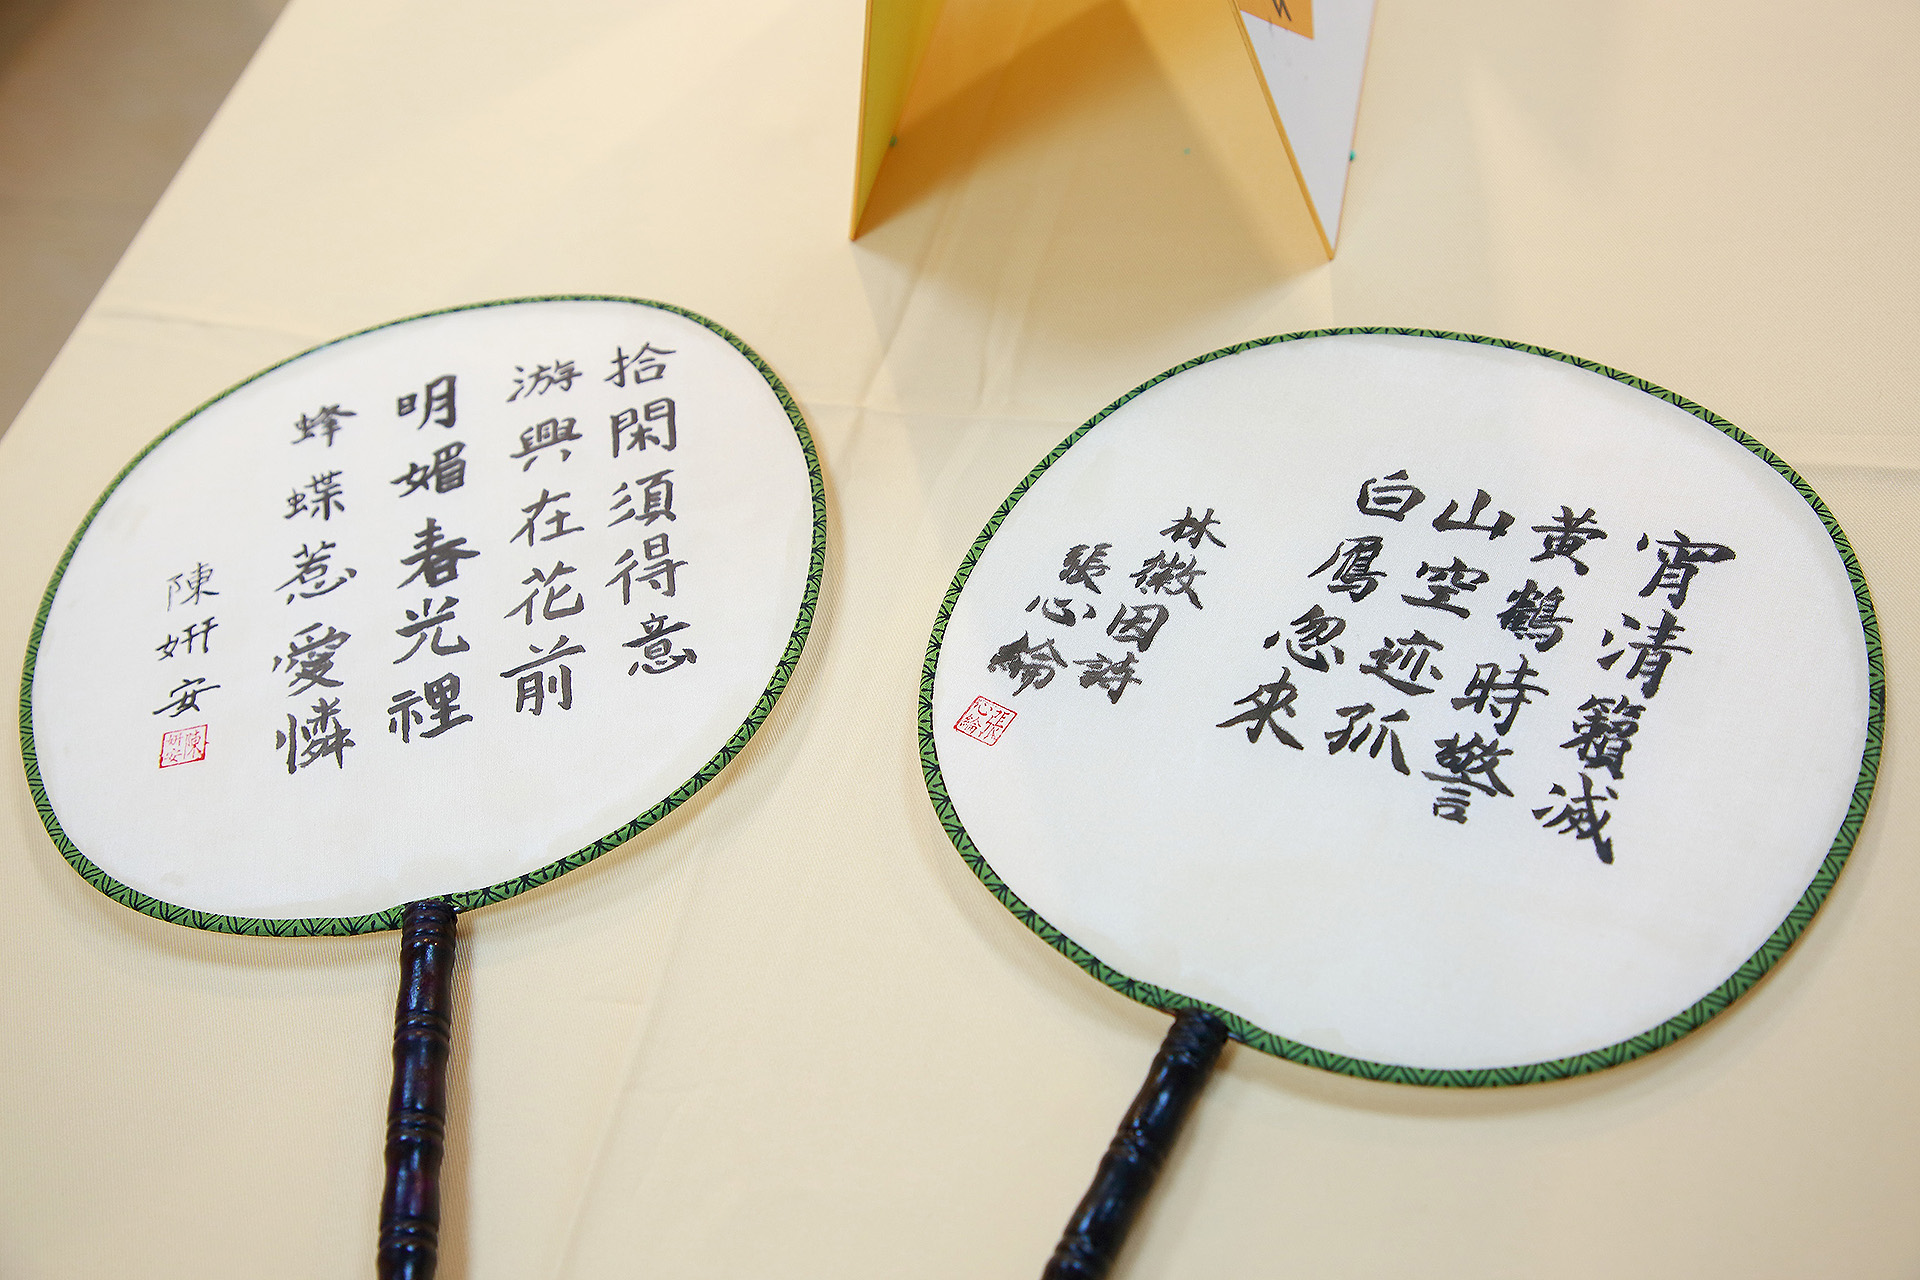 拾閑須得意
游興在花前
明媚春光裡
蜂蝶惹愛憐
陳姸安
陳姸安
宵清籟滅
黃鶴時警
山空迹孤
白鳳忽來
林徽因詩
張心綸
張心綸